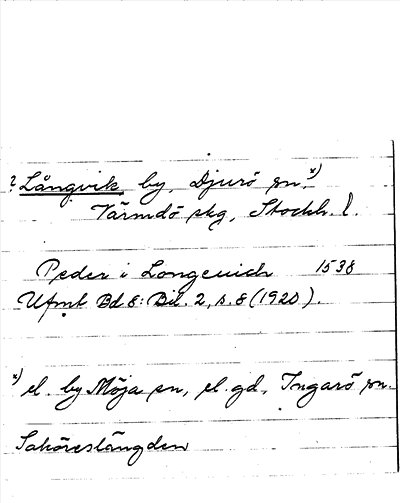 ? Långvik, by, Djurö sn. x)
Värmdö skg, Stockh. l.
Peder i Longeuich 1538
Ufmt Bd 8: Bil. 2, s. 8 (1920).
x) el. by Möja sn, el. gd, Ingarö sn.
Saköreslängden